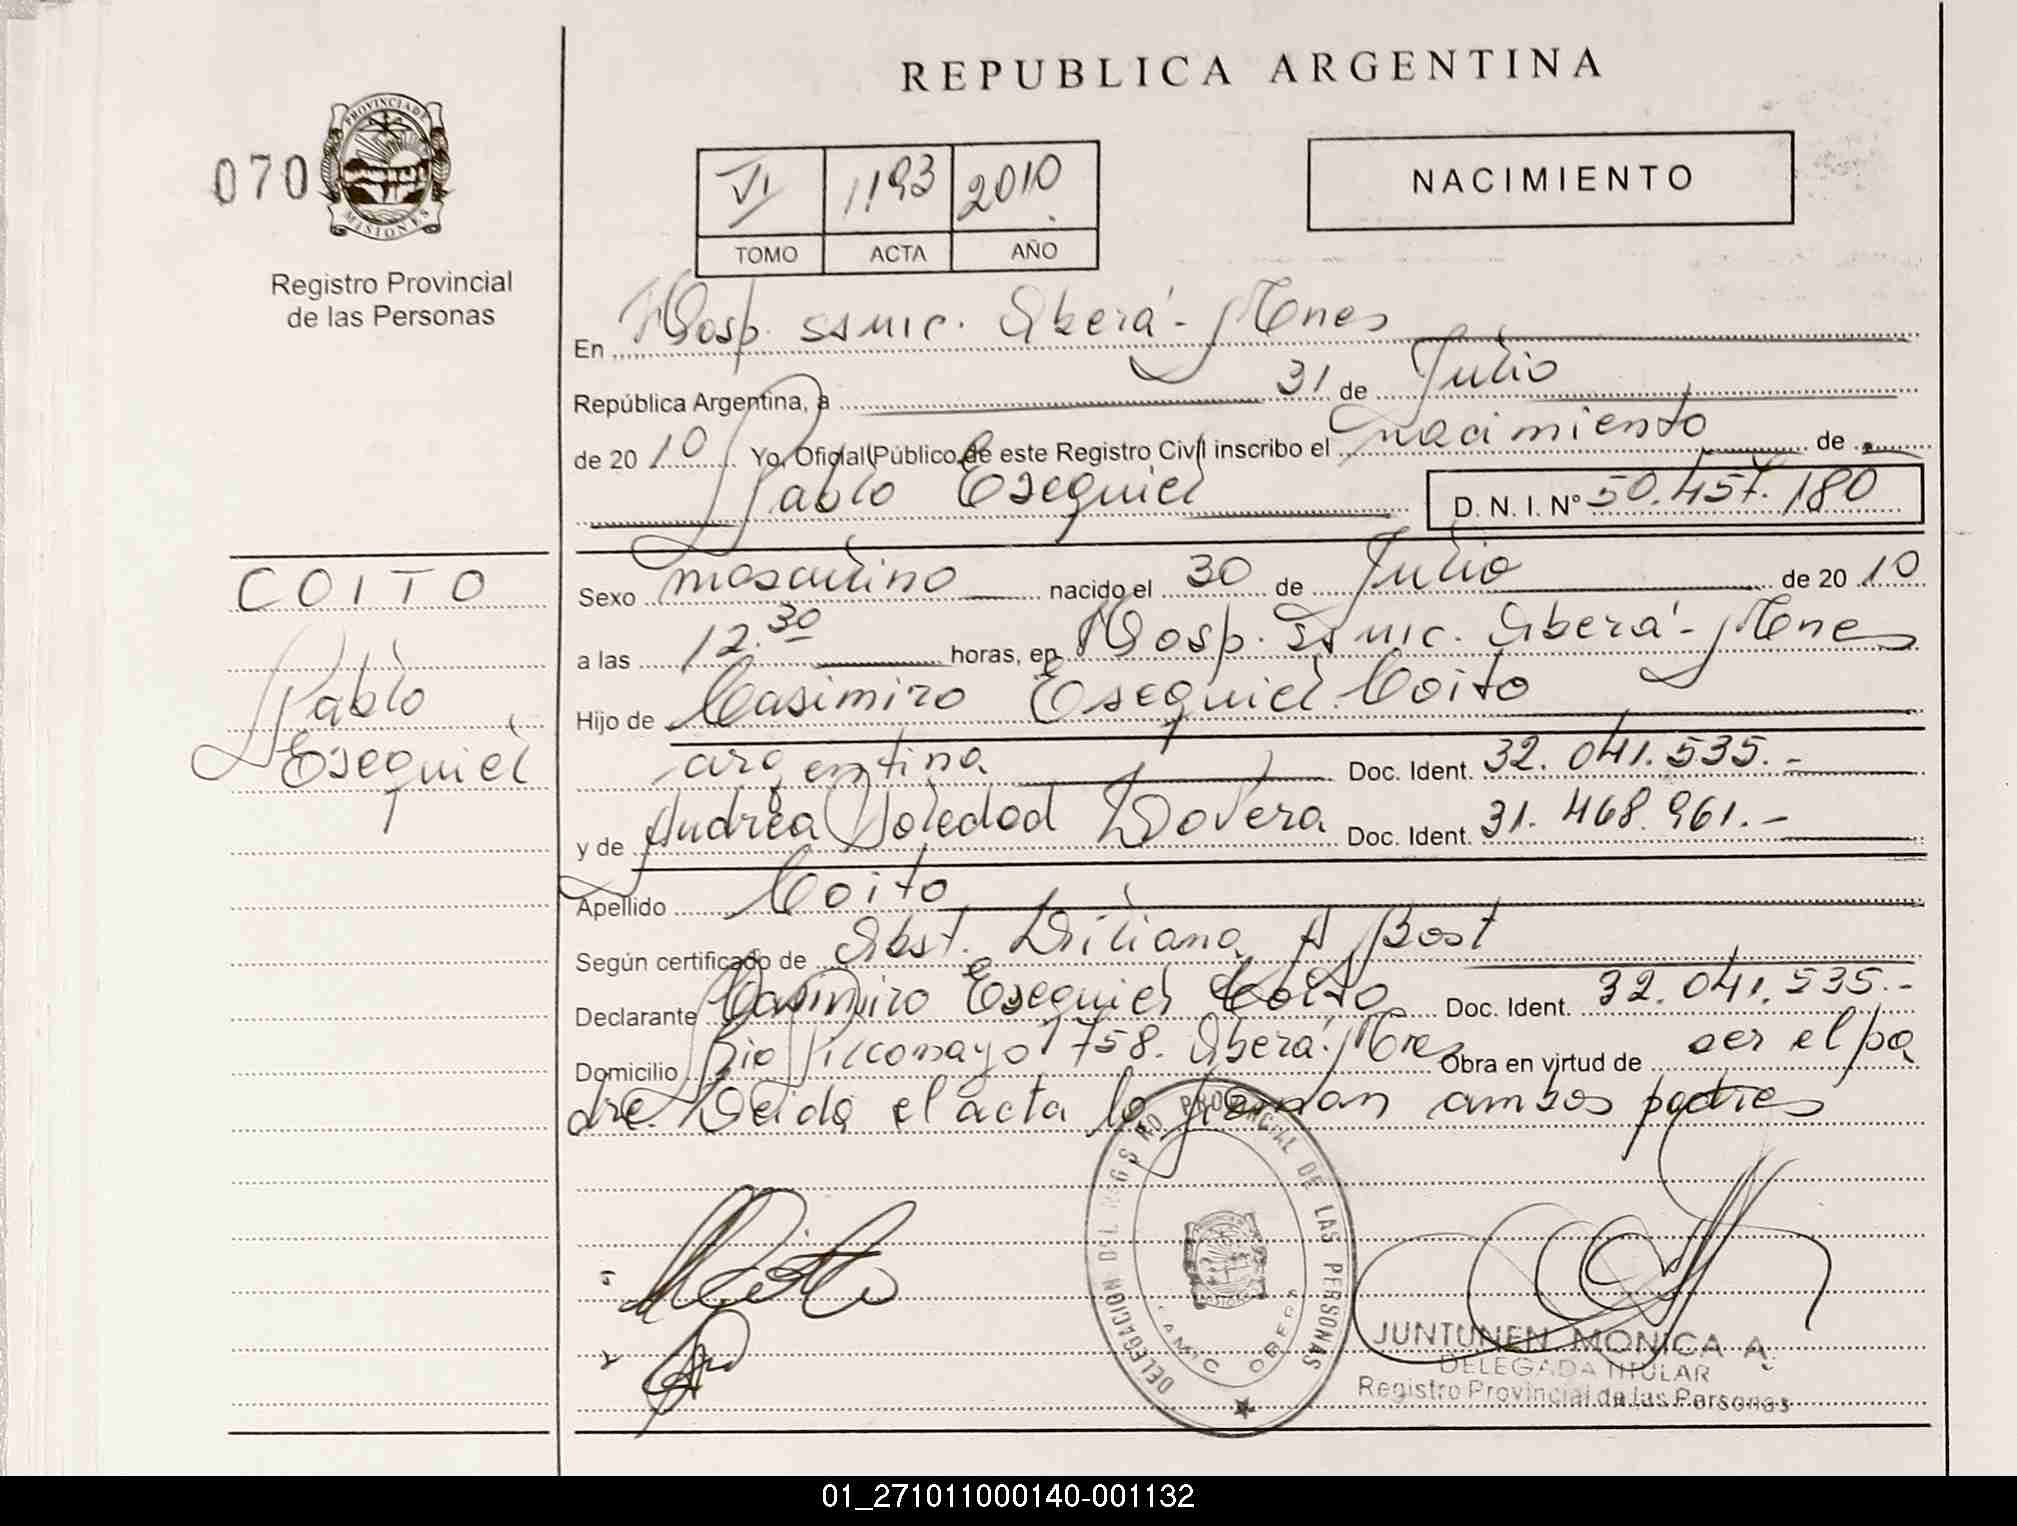 REPUBLICA ARGENTINA
070
PROVINCIA DE
MISIONES
Registro Provincial
de las Personas
VI 1193 2010
TOMO ACTA AÑO
NACIMIENTO
En Hosp. SSMIC. Oberá - Mnes
República Argentina, a 31 de Julio
de 2010 Yo, Oficial Público de este Registro Civil inscribo el nacimiento de
Pablo Esequiel D. N. I. Nº 50.457.180
COITO
Pablo
Esequiel
Sexo masculino nacido el 30 de Julio de 2010
a las 12.30 horas, en Hosp. SSMIC. Oberá - Mnes
Hijo de Casimiro Esequiel Coito
argentina Doc. Ident. 32.041.535.-
y de Andrea Soledad Lovera Doc. Ident. 31.468.961.-
Apellido Coito
Según certificado de Obst. Liliana A Bost
Declarante Casimiro Esequiel Coito Doc. Ident. 32.041.535.-
Domicilio Rio Pilcomayo 1758. Oberá. Mnes Obra en virtud de ser el pa
dre. Leida el acta la firman ambos padres
DELEGACION DEL REGISTRO PROVINCIAL DE LAS PERSONAS
OBERA
JUNTUNEN MONICA A.
DELEGADA TITULAR
Registro Provincial de las Personas
01_271011000140-001132